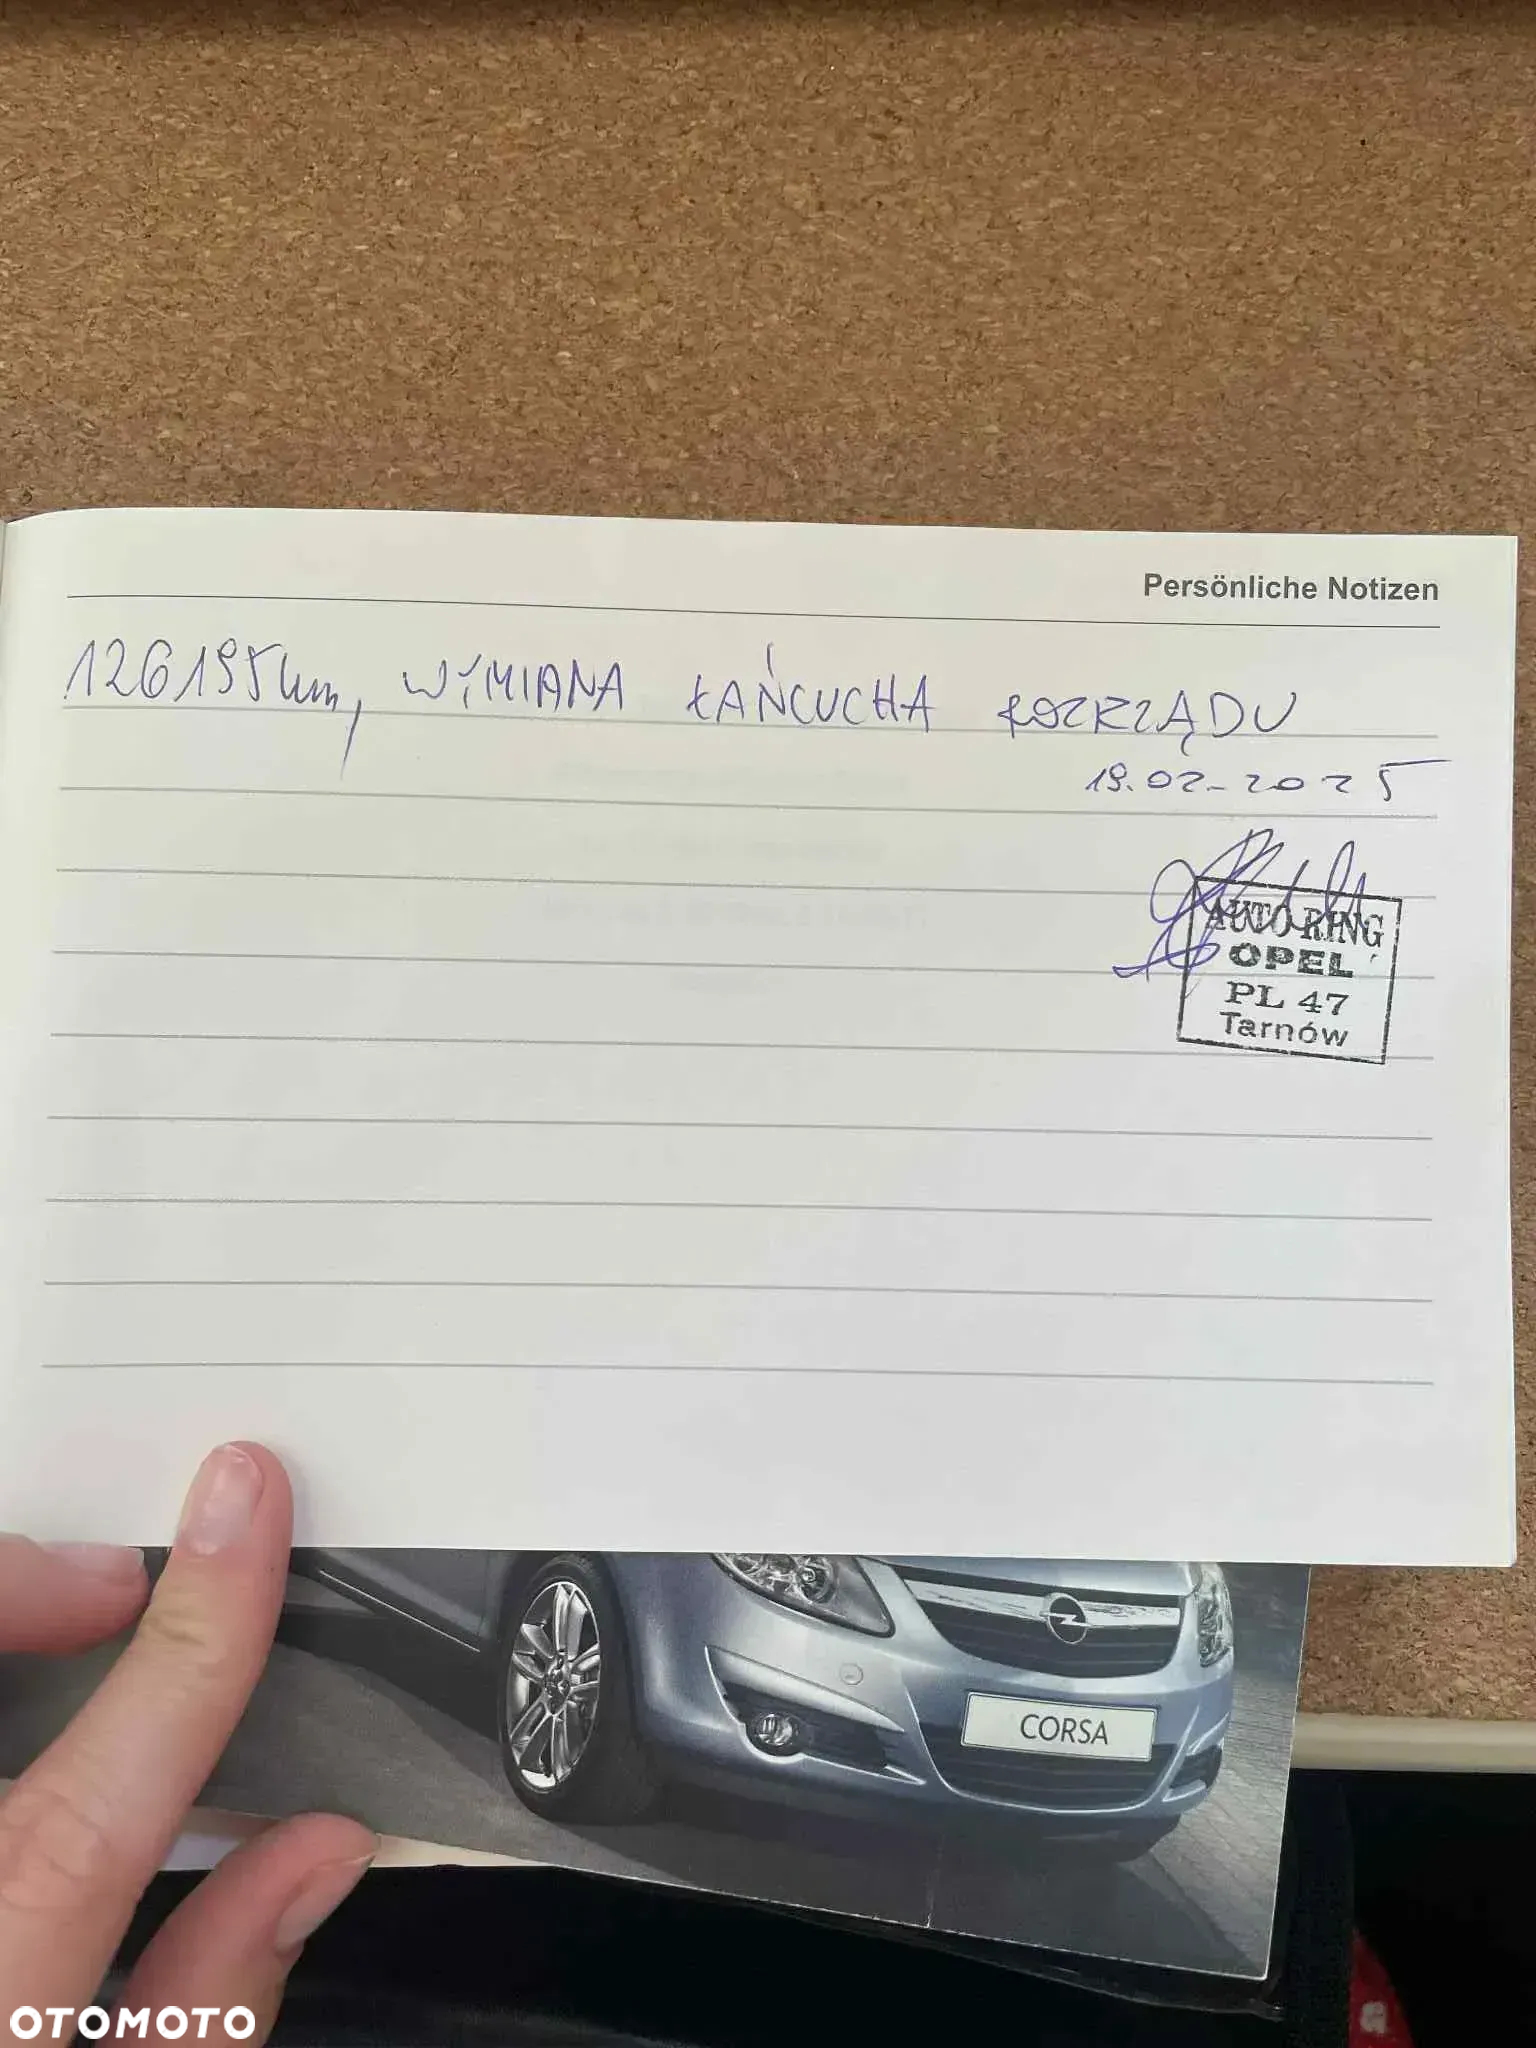 Persönliche Notizen
126195km, WYMIANA ŁAŃCUCHA ROZRZĄDU
19.02-2025
AUTO RING
OPEL
PL 47
Tarnów
CORSA
OTOMOTO